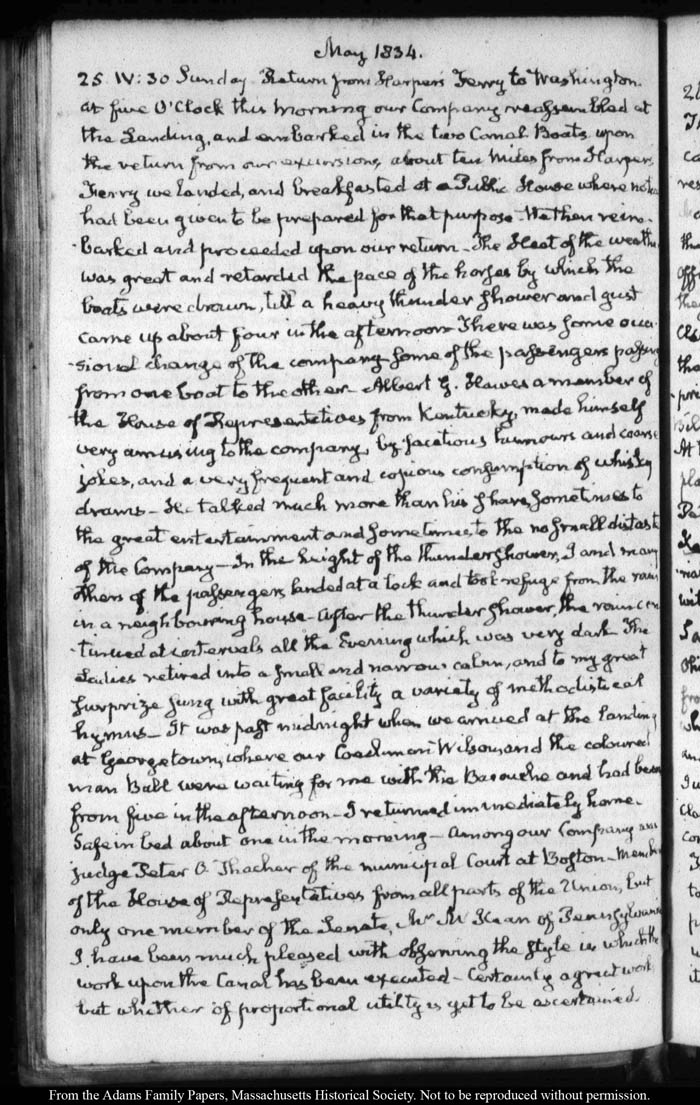 May 1834.
25. IV:30 Sunday. Return from Harpers Ferry to Washington.
at five O'Clock this morning our Company reassembled at
the Landing, and embarked in the two Canal Boats upon
the return from our excursion, about ten miles from Harpers
Ferry we landed, and breakfasted at a Public House where notice
had been given to be prepared for that purpose. We then reim-
-barked and proceeded upon our return – The Heat of the weather
was great and retarded the pace of the horses by which the
boats were drawn, till a heavy thunder shower and gust
came up about four in the afternoon There was some occa-
-sional change of the company some of the passengers passing
from one boat to the other – Albert G. Hawes a member of
the House of Representatives from Kentucky, made himself
very amusing to the company, by facetious humours and coarse
jokes, and a very frequent and copious consumption of whisky
drams – He talked much more than his share, sometimes to
the great entertainment and sometimes to the no small distaste
of the Company – In the height of the thunder shower, I and many
others of the passengers landed at a lock and took refuge from the rain
in a neighbouring house – After the thunder shower, the rain con
-tinued at intervals all the Evening which was very dark The
Ladies retired into a small and narrow cabin, and to my great
surprize sung with great facility a variety of methodistical
hymns – It was past midnight when we arrived at the landing
at Georgetown, where our Coachman Wilson, and the coloured
man Ball were waiting for me with the Barouche and had been
from five in the afternoon – I returned immediately home.
Safe in bed about one in the morning – Among our Company was
Judge Peter O. Thacher of the municipal Court at Boston – Members
of the House of Representatives from all parts of the Union, but
only one member of the Senate, Mr McKean of Pennsylvania
I have been much pleased with observing the style in which the
work upon the Canal has been executed – Certainly a great work
but whether of proportional utility is yet to be ascertained.
From the Adams Family Papers, Massachusetts Historical Society. Not to be reproduced without permission.